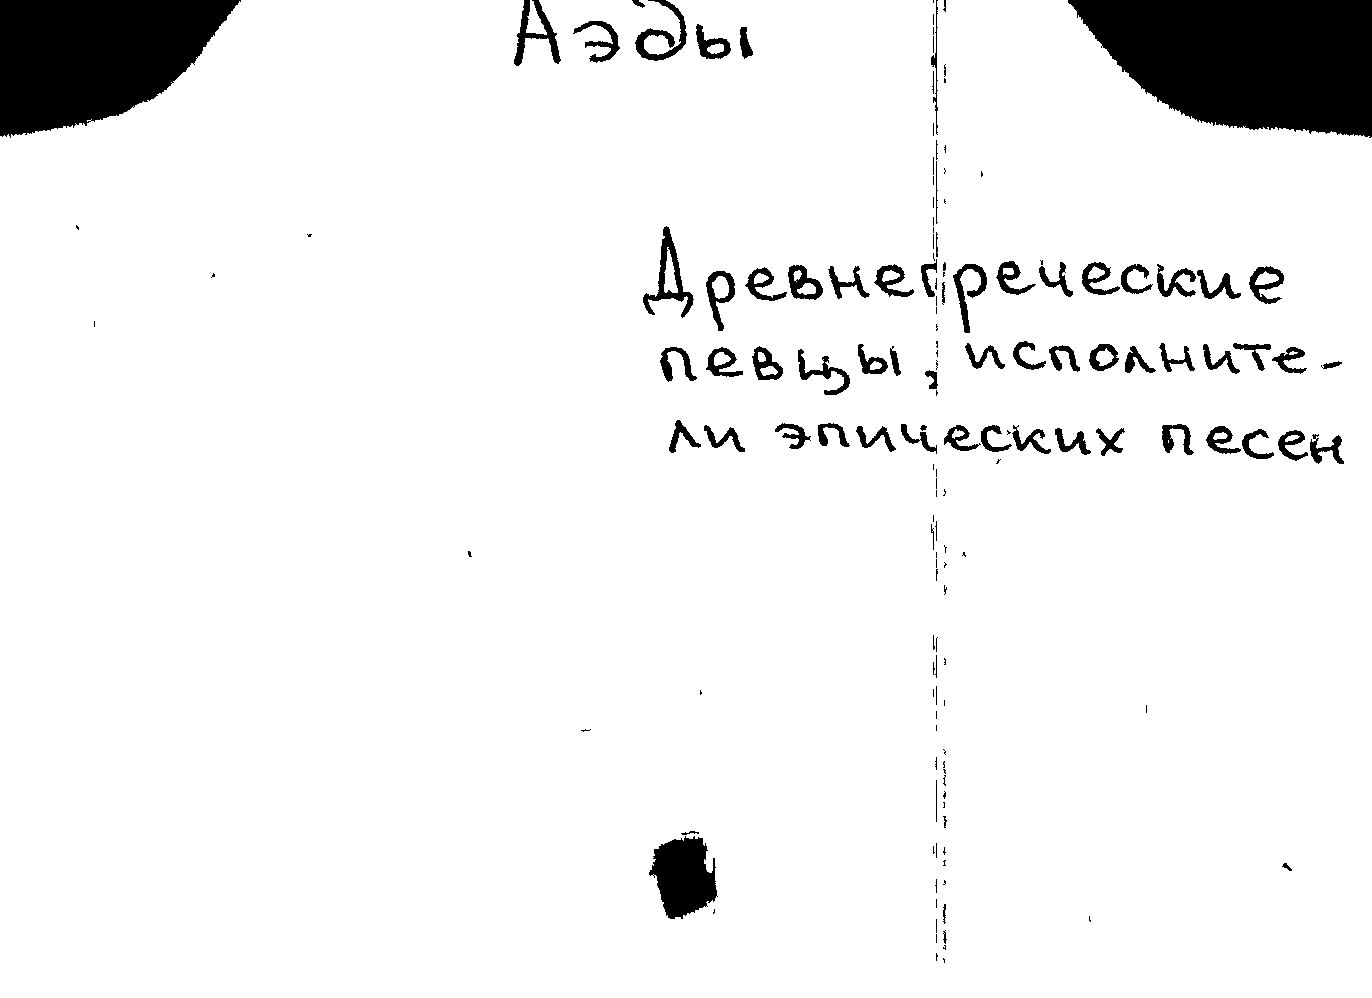 Аэды
Древнегреческие
певцы, исполните-
ли эпических песен